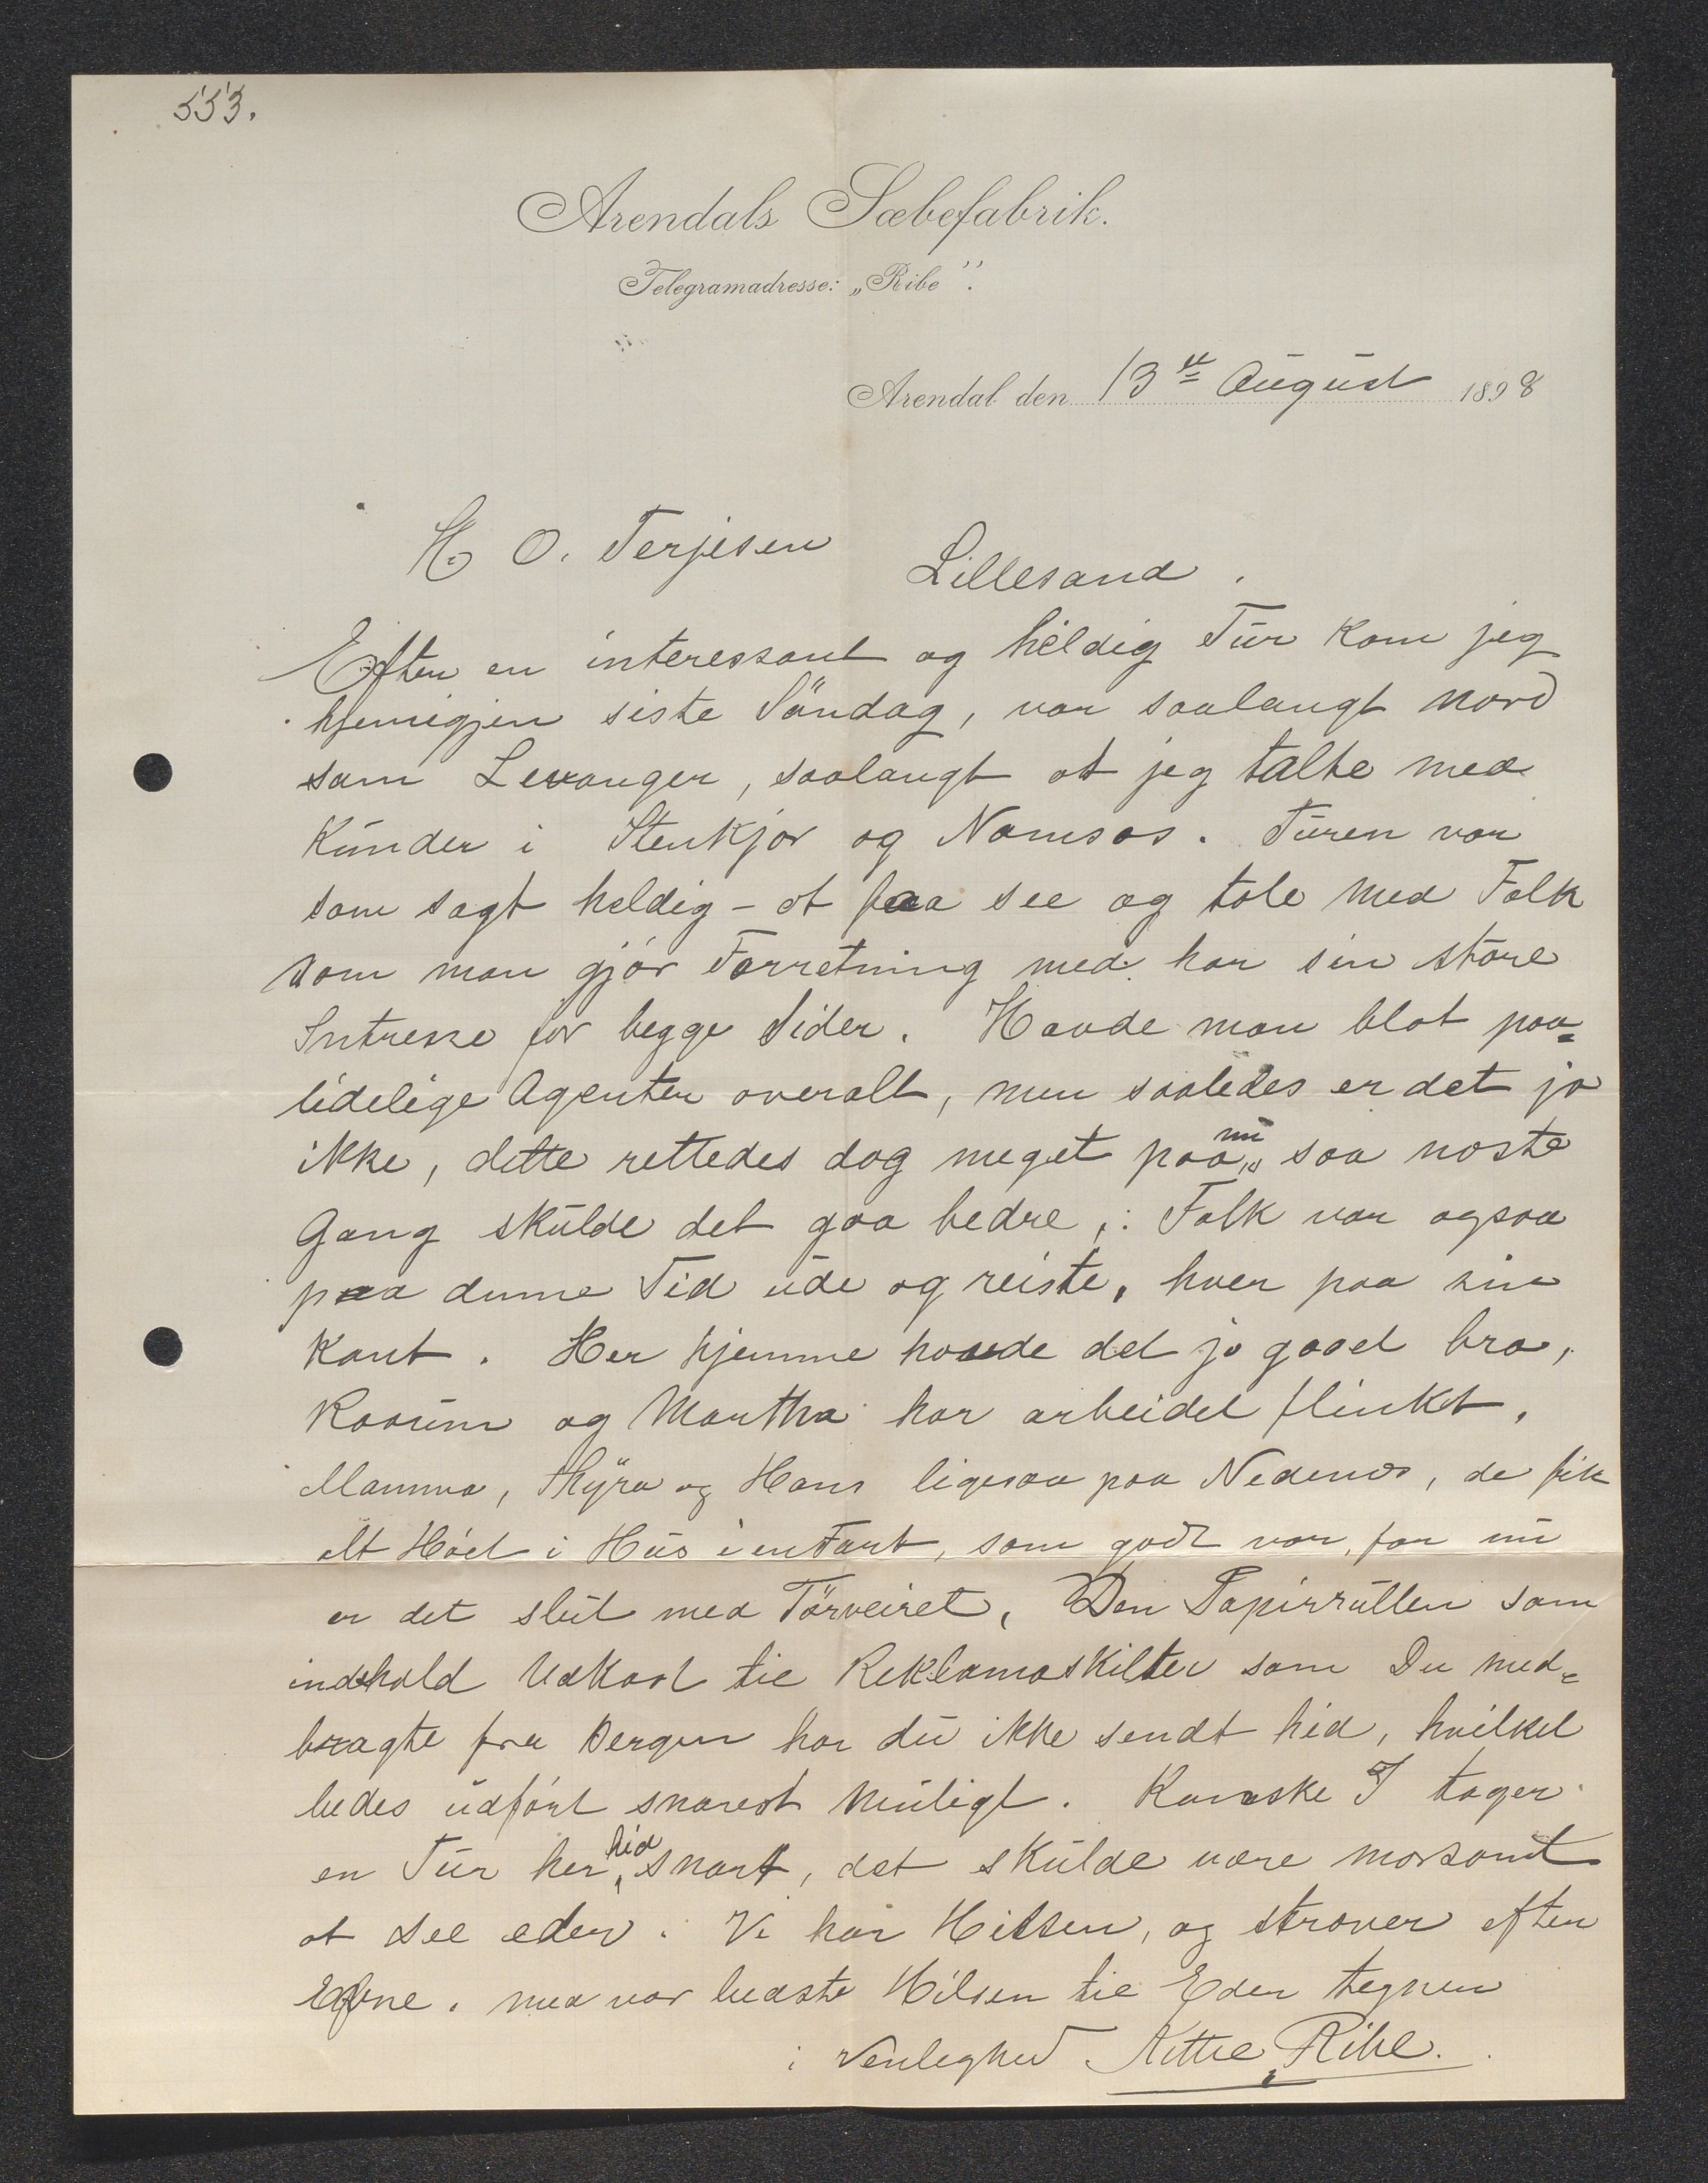 553.
Arendals Sæbefabrik.
Telegramadresse: „Ribe".
Arendal den 13de August 1898
H. O. Terjesen
Lillesand.
Efter en interessant og heldig Tur kom jeg
hjemigjen siste Söndag, var saalangt Nord
som Levanger, saalangt at jeg talte med
Kunder i Stenkjær og Namsos. Turen var
som sagt heldig - at faa see og tale med Folk
som man gjör Forretning med har sin store
Intresse for begge Sider. Havde man blot paa=
lidelige Agenter overalt, men saaledes er det jo
ikke, dette rettedes dog meget paa nu, saa næste
Gang skulde det gaa bedre, Folk var ogsaa
paa denne Tid ude og reiste, hver paa sin
Kant. Her hjemme havde det jo gaaet bra,
Kaarem og Martha har arbeidet flinkt,
Mamma, Thyra og Hans ligesaa paa Nedenes, de fik
alt Höet i Hus i en Fart, som godt var, for nu
er det slut med Törveiret, Den Papirrullen som
indehold Udkast til Reklamaskilter som Du med=
bragte fra Bergen har du ikke sendt hid, hvilket
bedes udfört snarest muligt. Kanske I tager
en Tur her hid snart, det skulde være morsomt
at see eder. Vi har Hilsen, og stræver efter
Efne. med vor bedste Hilsen til Eder tegner
i Venlighed Kittil Ribe.